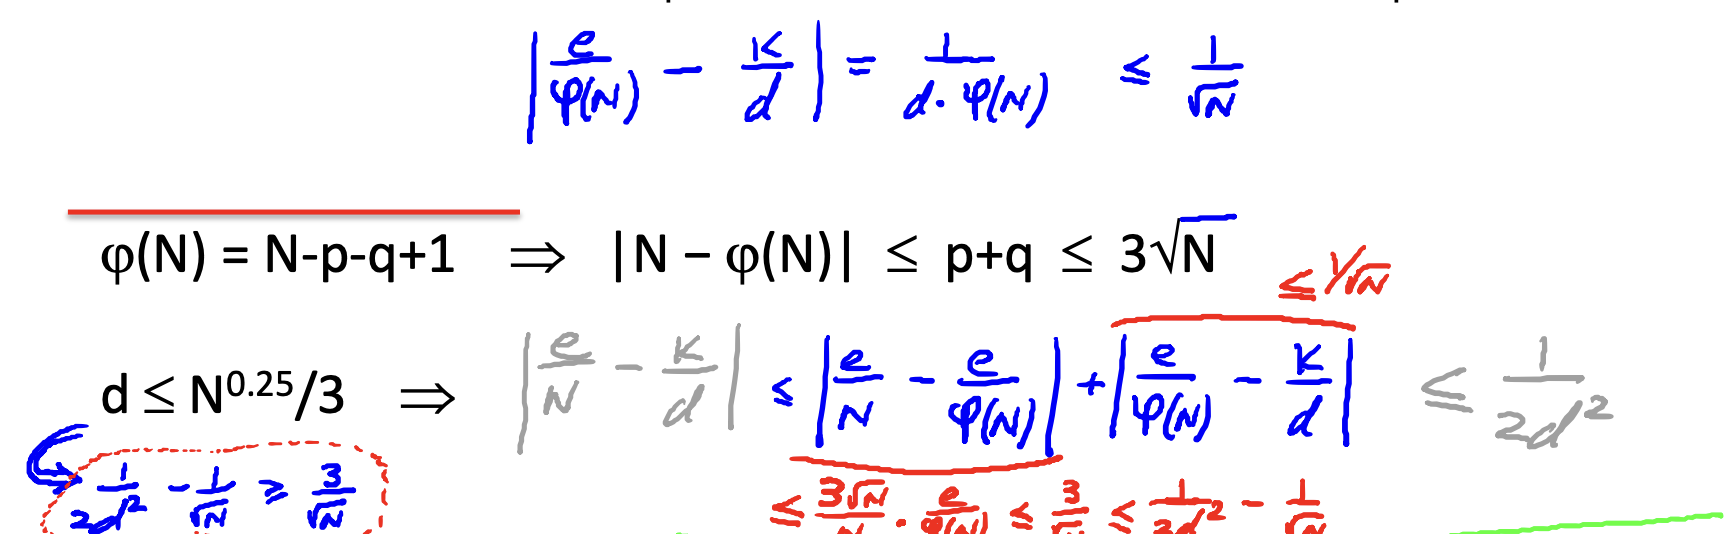 |e/φ(N) − k/d| = 1/(d·φ(N)) ≤ 1/√N
φ(N) = N-p-q+1 ⇒ |N − φ(N)| ≤ p+q ≤ 3√N
≤ 1/√N
d ≤ N^0.25/3 ⇒ |e/N − k/d| ≤ |e/N − e/φ(N)| + |e/φ(N) − k/d| ≤ 1/(2d²)
1/(2d²) − 1/√N ≥ 3/√N
≤ 3√N/N · e/φ(N) ≤ 3/√N ≤ 1/(2d²) − 1/√N